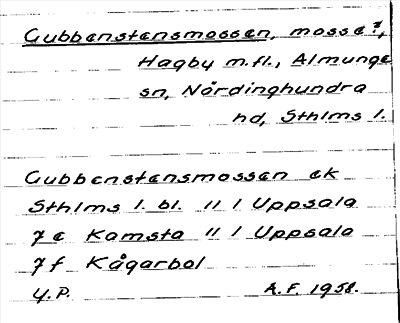 Gubbenstensmossen, mosse?,
Hagby m.fl., Almunge
sn, Närdinghundra
hd, Sthlms l.
Gubbenstensmossen ek
Sthlms l. bl. 11 l Uppsala
7 e Kamsta 11 l Uppsala
7 f Kågarbol
Y.P. A.F. 1958.